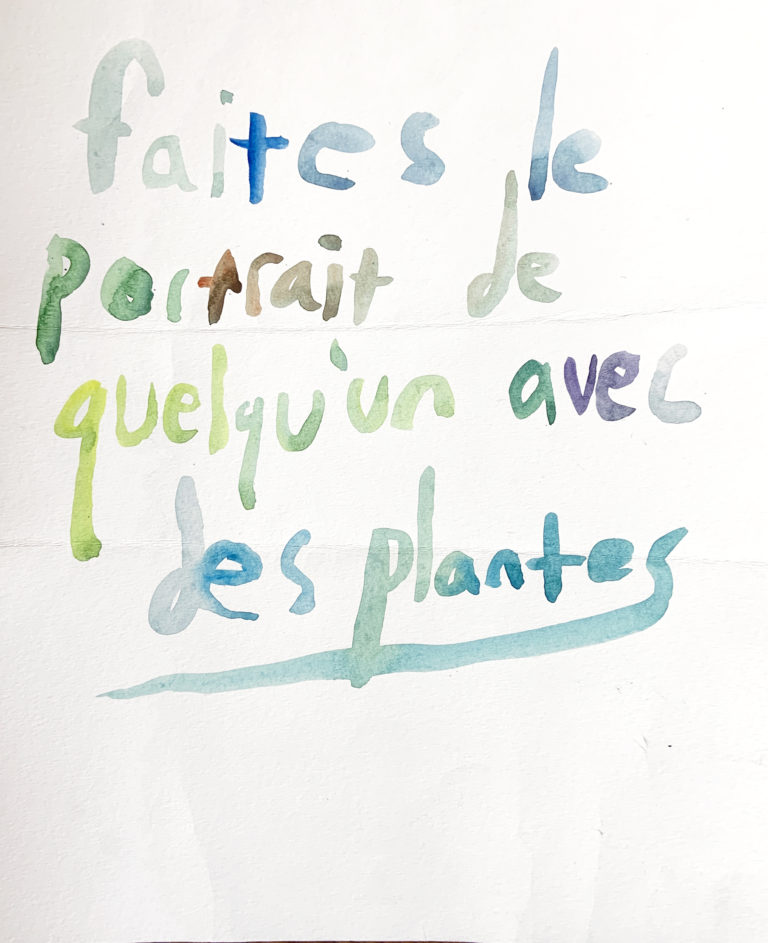 faites le
portrait de
quelqu'un avec
des plantes